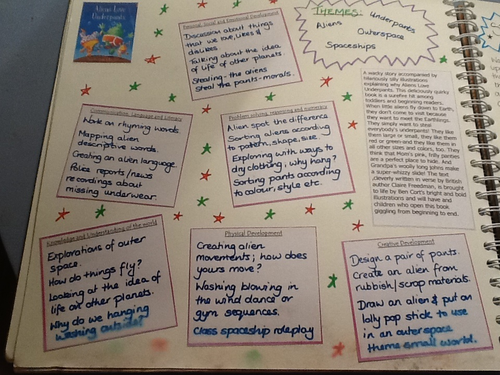 Aliens Love
Underpants
Personal, Social and Emotional Development
Discussion about things
that we love, likes &
dislikes.
Talking about the idea
of life of other planets
Stealing - the aliens
steal the pants - morals.
THEMES:
Aliens
Underpants
Outerspace
Spaceships
A wacky story accompanied by
hilariously silly illustrations
explaining why Aliens Love
Underpants! This deliciously quirky
book is a surefire hit among
toddlers and beginning readers.
When little aliens fly down to Earth,
they don't come to visit because
they want to meet the Earthlings.
They simply want to steal
everybody's underpants! They like
them large or small, they like them
red or green-and they like them in
all other sizes and colors, too. They
think that Mom's pink, frilly panties
are a perfect place to hide. And
Grandpa's woolly long johns make
a super-whizzy slide! The text
cleverly written in verse by British
author Claire Freedman, is brought
to life by Ben Cort's bright and bold
illustrations and will have and
children who open this book
giggling from beginning to end.
Communication, Language and Literacy
Work on rhyming words
Mapping alien
descriptive words.
Creating an alien language.
Police reports / news
recordings about
missing underwear.
Problem solving, reasoning and numeracy
Alien spot the difference
Sorting aliens according
to pattern, shape, size.
Exploring with ways to
dry clothing; why hang?
Sorting pants according
to colour, style etc.
Knowledge and Understanding of the world
Explorations of outer
space.
How do things fly?
Looking at the idea of
life on other planets.
Why do we hanging
washing outside?
Physical Development
Creating alien
movements; how does
yours move?
Washing blowing in
the wind dance or
gym sequences.
Class spaceship roleplay
Creative Development
Design a pair of pants.
Create an alien from
rubbish/scrap materials.
Draw an alien & put on
lolly pop stick to use
in an outerspace
theme small world.